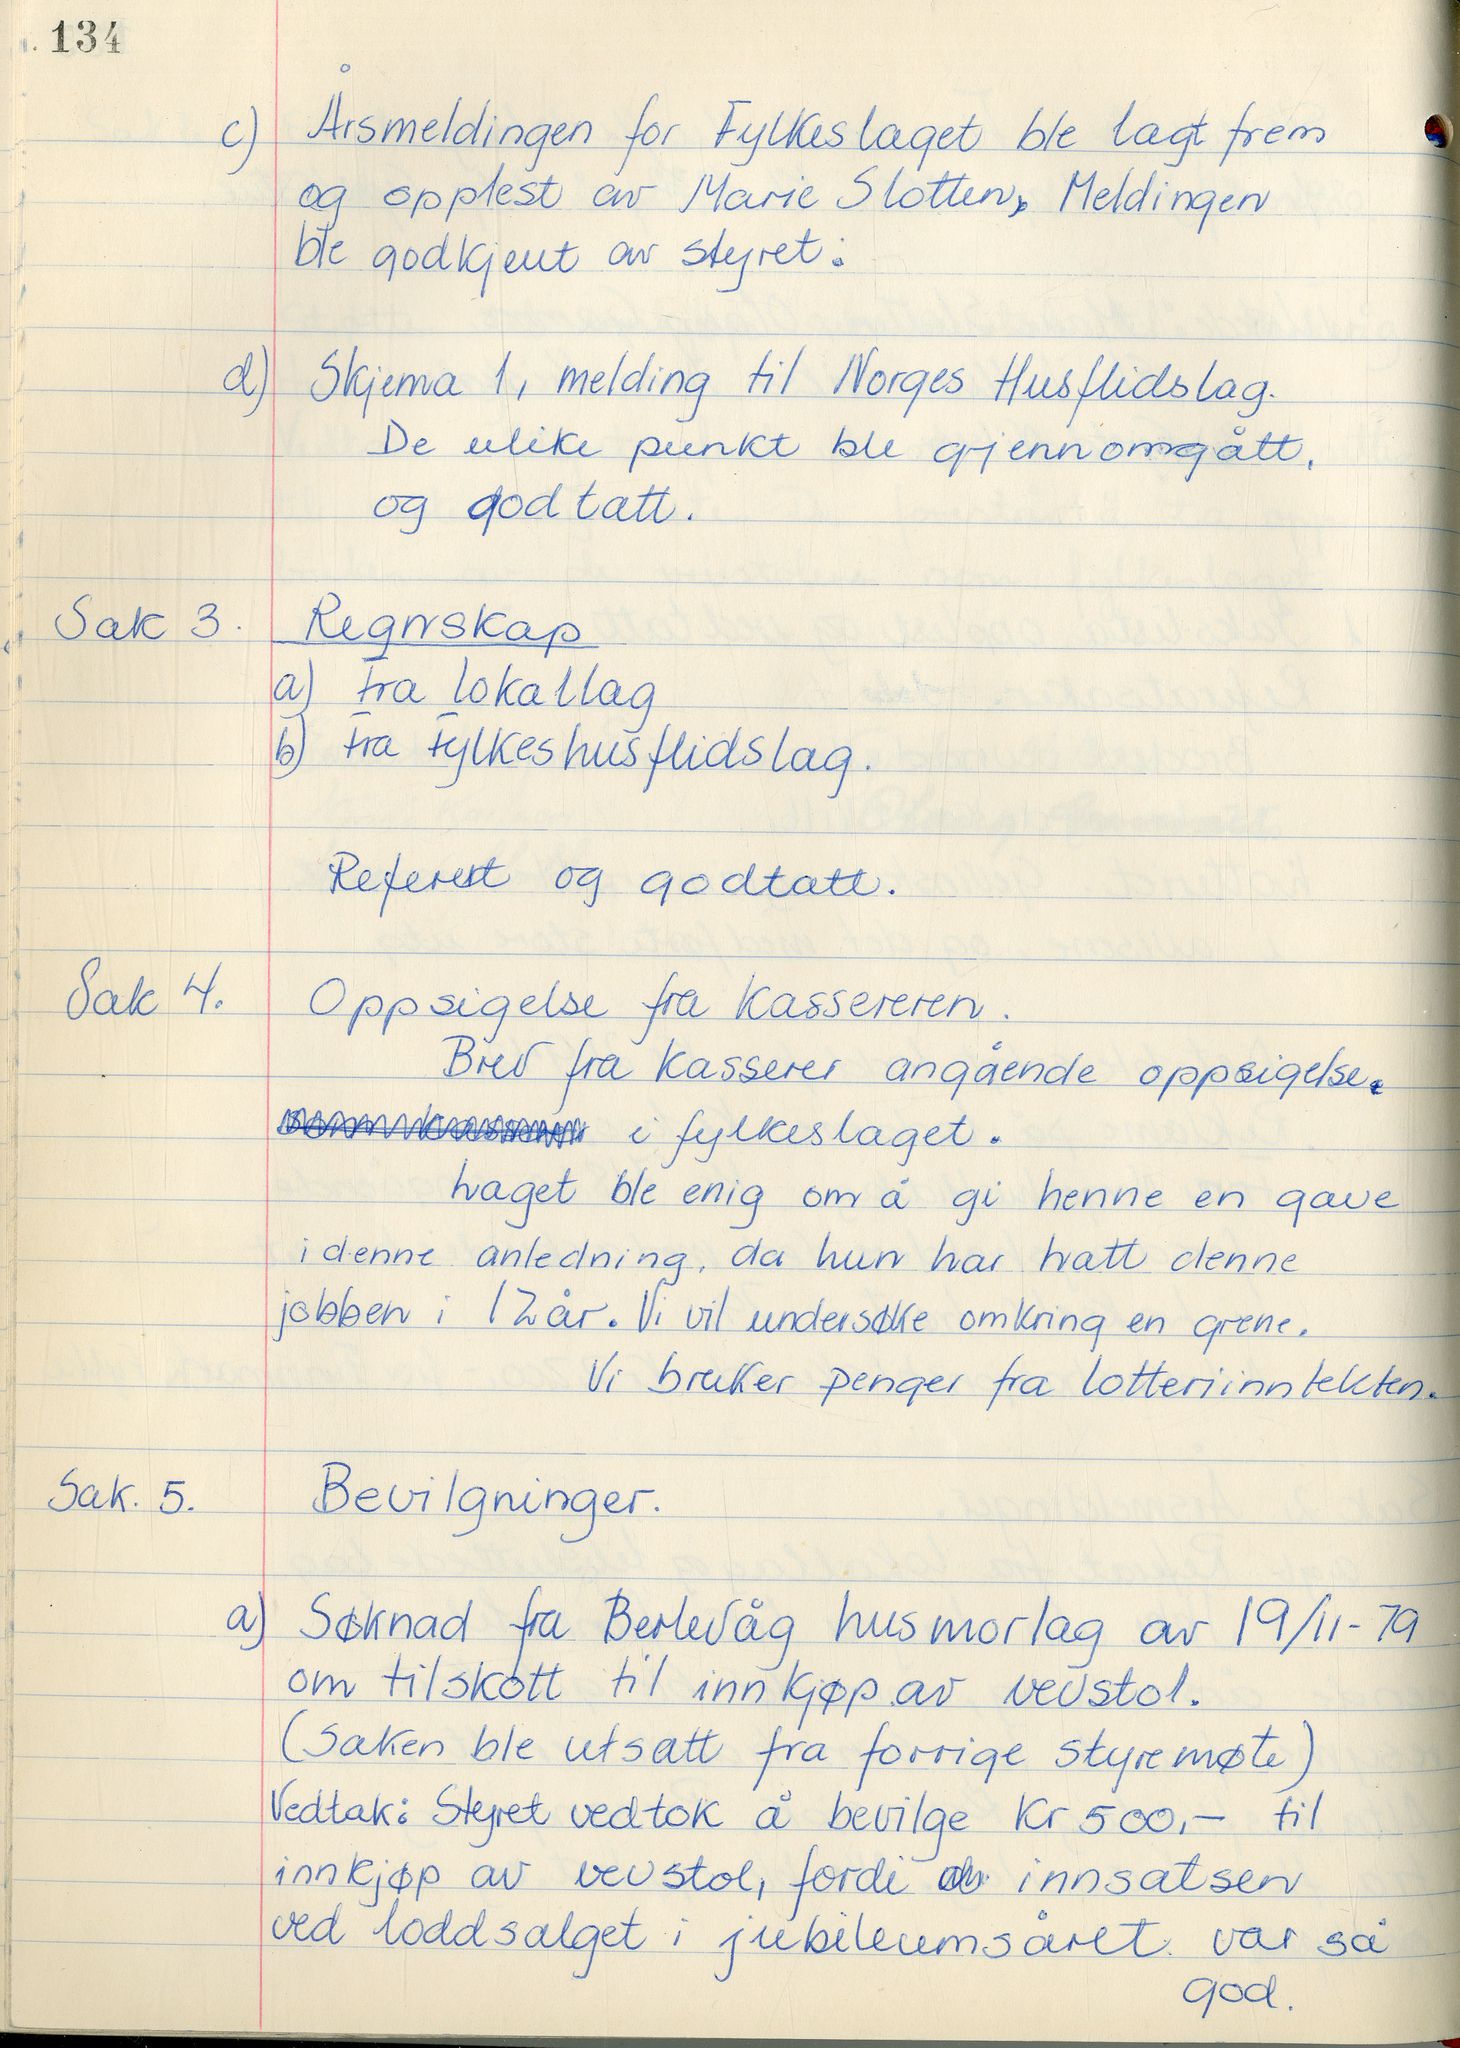 134
c) Årsmeldingen for Fylkeslaget ble lagt frem
og opplest av Marie Slotten, Meldingen
ble godkjent av styret.
d) Skjema 1, melding til Norges Husflidslag.
De ulike punkt ble gjennomgått,
og godtatt.
Sak 3. Regnskap
a) Fra lokallag
b) Fra Fylkeshusflidslag.
Referert og godtatt.
Sak 4. Oppsigelse fra kassereren.
Brev fra kasserer angående oppsigelse.
i fylkeslaget.
Laget ble enig om å gi henne en gave
i denne anledning, da hun har hatt denne
jobben i 12 år. Vi vil undersøke omkring en grene.
Vi bruker penger fra lotteriinntekten.
Sak. 5. Bevilgninger.
a) Søknad fra Berlevåg husmorlag av 19/11-79
om tilskott til innkjøp av vevstol.
(Saken ble utsatt fra forrige styremøte)
Vedtak: Styret vedtok å bevilge Kr 500,- til
innkjøp av vevstol, fordi innsatsen
ved loddsalget i jubileumsåret var så
god.